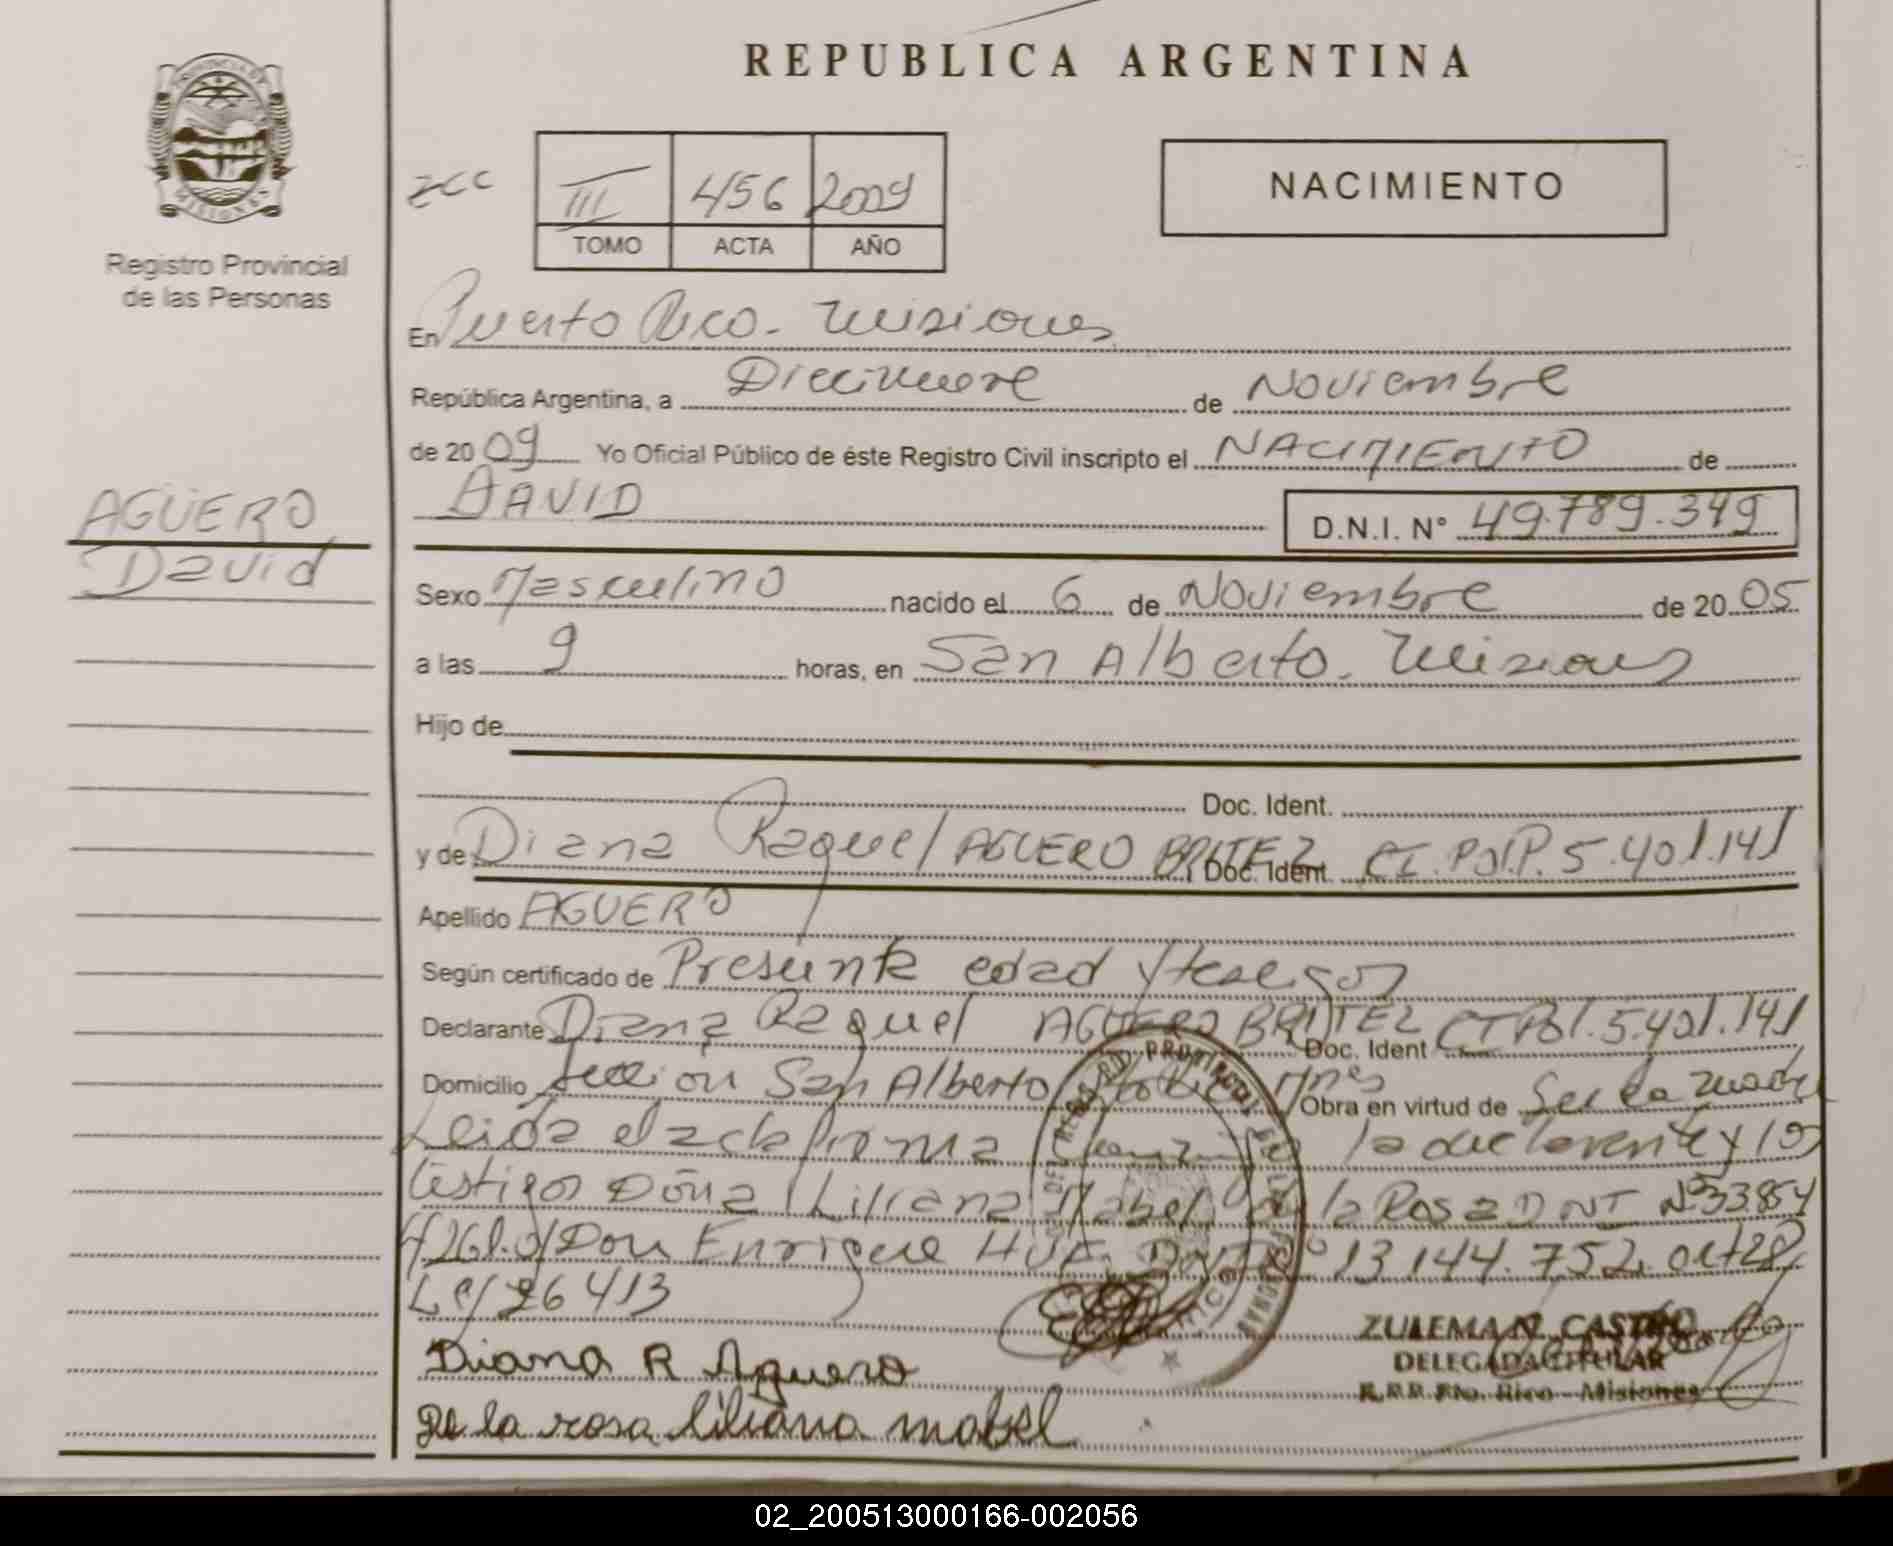 REPUBLICA ARGENTINA
PROVINCIA DE
MISIONES
Registro Provincial
de las Personas
zcc
III 456 2009
TOMO ACTA AÑO
NACIMIENTO
En Puerto Rico - Misiones
República Argentina, a Diecinueve de Noviembre
de 2009 Yo Oficial Público de éste Registro Civil inscripto el NACIMIENTO de
DAVID D.N.I. N° 49.789.349
AGÜERO
David
Sexo Masculino nacido el 6 de Noviembre de 2005
a las 9 horas, en San Alberto - Misiones
Hijo de
Doc. Ident.
y de Diana Raquel AGUERO BRITEZ Doc. Ident. CI.Pol.P.5.401.141
Apellido AGUERO
Según certificado de Presunta edad y testigos
Declarante Diana Raquel AGUERO BRITEZ Doc. Ident CI Pol.5.401.141
Domicilio San Alberto Mnes Obra en virtud de Ser la madre
Leida el acta firma la declarante y los
testigos Doña Liliana Mabel de la Rosa DNI N°33.854
Don Enrique 13.144.752
26413
Diana R Aguero
De la rosa liliana mabel
ZULEMA N. CASTRO
DELEGADA TITULAR
R.P.P. Pto. Rico - Misiones
02_200513000166-002056